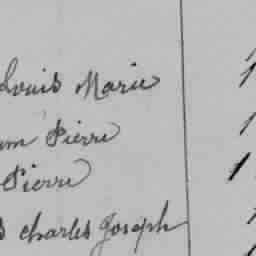 Louis Marie
Pierre
Pierre
Charles Joseph